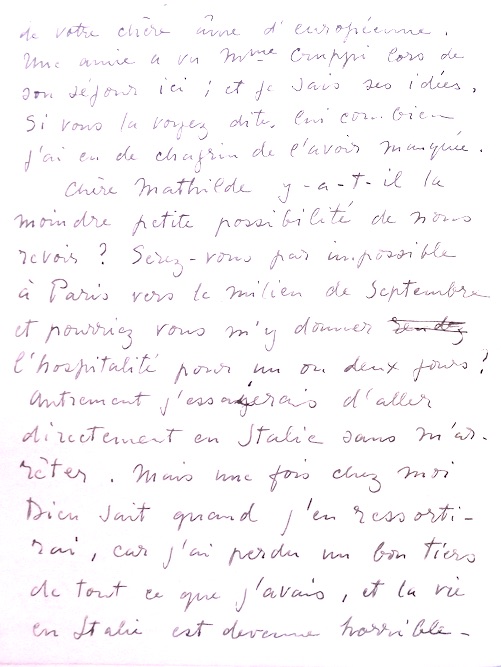 de votre chère âme d'européenne.
Une amie a vu Mme Cruppi lors de
son séjour ici ; et je sais ses idées.
Si vous la voyez dites lui combien
j'ai eu de chagrin de l'avoir manquée.
Chère Mathilde y-a-t-il la
moindre petite possibilité de nous
revoir ? Serez-vous par impossible
à Paris vers le milieu de Septembre
et pourriez vous m'y donner rendez
l'hospitalité pour un ou deux jours ?
Autrement j'essayerais d'aller
directement en Italie sans m'ar-
rêter. Mais une fois chez moi
Dieu sait quand j'en ressorti-
rai, car j'ai perdu un bon tiers
de tout ce que j'avais, et la vie
en Italie est devenue horrible-